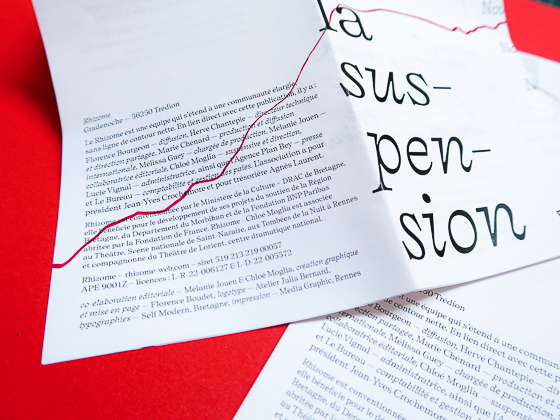 la
sus-
pen-
sion
Rhizome
Gradenoche – 56250 Trédion
Le Rhizome est une équipe qui s'étend à une communauté élargie,
sans ligne de contour nette. En lien direct avec cette publication, il y a :
Florence Bourgeon – diffusion, Hervé Chantepie – directeur technique
et direction partagée, Marie Chénard – production et diffusion
internationale, Mélissa Guey – chargée de production,
collaboratrice éditoriale, Chloé Moglia – suspensive et direction,
Lucie Vignal – administratrice, ainsi que Agence Plan Bey – presse
et Le Bureau – comptabilité et gestion des paies. L'association a pour
président Jean-Yves Crochemore et pour trésorière Agnès Laurent.
Rhizome conventionnée par le Ministère de la Culture – DRAC de Bretagne,
elle bénéficie pour le développement de ses projets du soutien de la Région
Bretagne, du Département du Morbihan et de la Fondation BNP Paribas
abritée par la Fondation de France. Rhizome · Chloé Moglia est associée
au Théâtre, Scène nationale de Saint-Nazaire, aux Tombées de la Nuit à Rennes
et compagnonne du Théâtre de Lorient, centre dramatique national.
Rhizome – rhizome-web.com – siret 519 213 219 00057
APE 9001Z – licences : L-R-22-006127 & L-D-22-005572
co-élaboration éditoriale – Mélanie Jouen & Chloé Moglia, création graphique
et mise en page – Florence Boudet, logotype – Atelier Julia Bernard,
typographies – Self Modern, Bretagne, impression – Media Graphic, Rennes
Trédion
est une équipe qui s'étend à une
contour nette. En lien direct avec cette
Bourgeon – diffusion,
partagée, Marie Chénard –
Mélissa Guey – chargée de production
collaboratrice éditoriale, Chloé Moglia –
Lucie Vignal – administratrice, ainsi que
et Le Bureau – comptabilité et gestion
président Jean-Yves
Rhizome est conventionnée
elle bénéficie pour le
Bretagne, du
abritée par la
au Théâtre